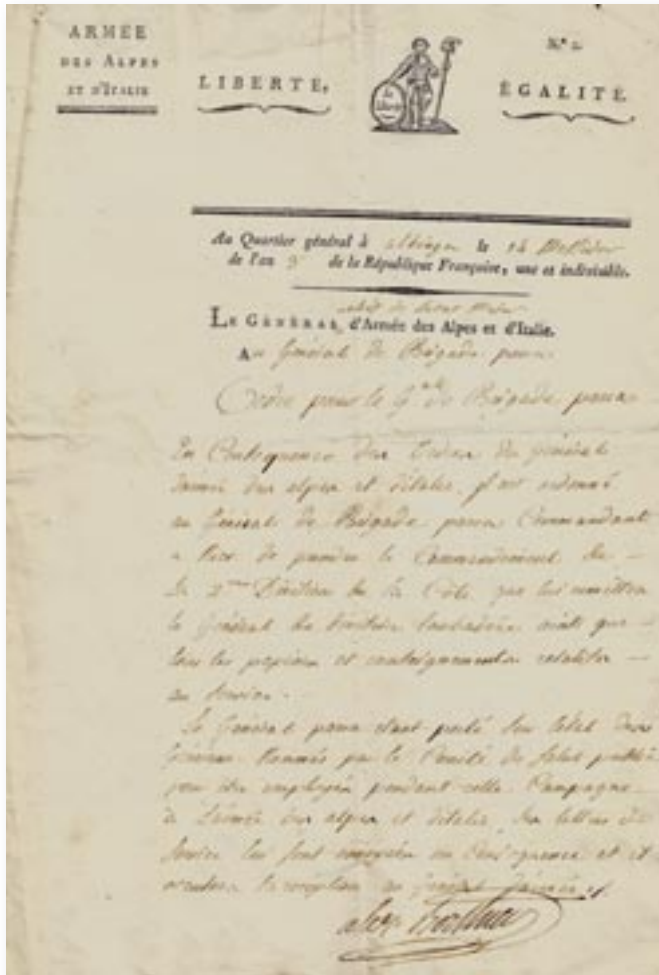 ARMÉE
DES ALPES
ET D'ITALIE
LIBERTÉ,
N.º 2.
ÉGALITÉ.
Au Quartier général à le 14
de l'an 3 de la République Française, une et indivisible.
LE GÉNÉRAL d'Armée des Alpes et d'Italie.
Au Général de Brigade
Ordre pour le G.al de Brigade
En Consequence des Ordres du général
d'armée des alpes et d'italie, il est ordonné
au Général de Brigade Commandant
a de prendre le Commandement de
la 2.me Division de la Côte, que lui remettra
le Général de Division ainsi que
tous les papiers et renseignements relatifs
au Service.
Le Général etant porté Sur l'etat des
Généraux par le Comité de Salut public
pour être employés pendant cette Campagne
à l'armée des alpes et d'italie, des lettres de
Service lui sont envoyées en Consequence et il
reception au général d'armée